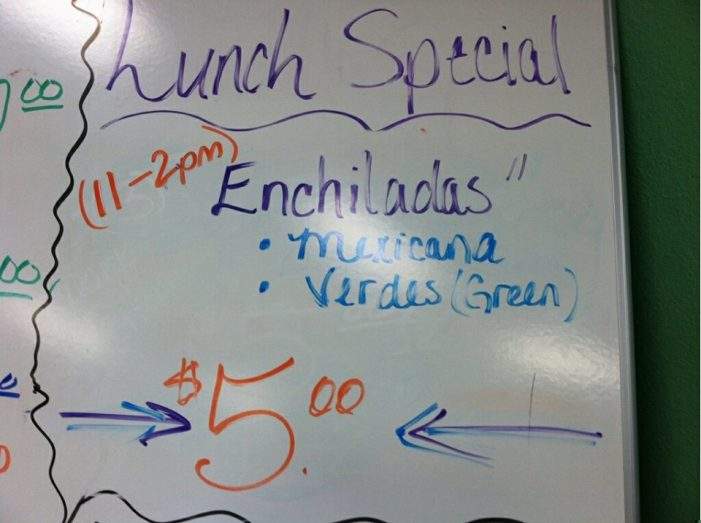 Lunch Special
(11-2pm)
Enchiladas"
• Mexicana
• Verdes (Green)
$5.00
00
00